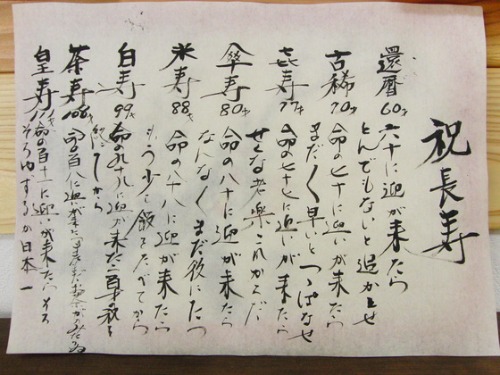 祝長寿
還暦60才 六十に迎が来たら
とんでもないと追かえせ
古稀70才 命の七十に迎いが来たら
まだ〱早いとつゝぱなせ
㐂寿77才 命の七十七に迎いが来たら
せくな老楽これからだ
傘寿80才 命の八十に迎が来たら
なんのなんのまだ役にたつ
米寿88才 命の八十八に迎が来たら
もう少し飯をたべてから
白寿99才 命の九十九に迎が来たら
茶寿108才 命の百八に迎いが来たら
皇寿111才 命の百十一に迎いが来たら
そろ〱ゆずるか日本一